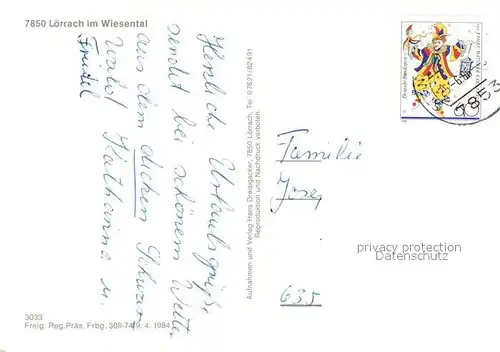 7850 Lörrach im Wiesental
Herzliche Urlaubsgrüße
sendet bei schönem Wetter
aus dem dicken Schwarz-
wald Katharina u.
Friedel
Aufnahmen und Verlag Hans Dreisigacker, 7850 Lörrach, Tel. 07621/82491
Reproduktion und Nachdruck verboten.
Familie
Josef
635
7853
privacy protection
DatenSchutz
3033
Freig. Reg. Präs. Frbg. 308-74/9. 4. 1984